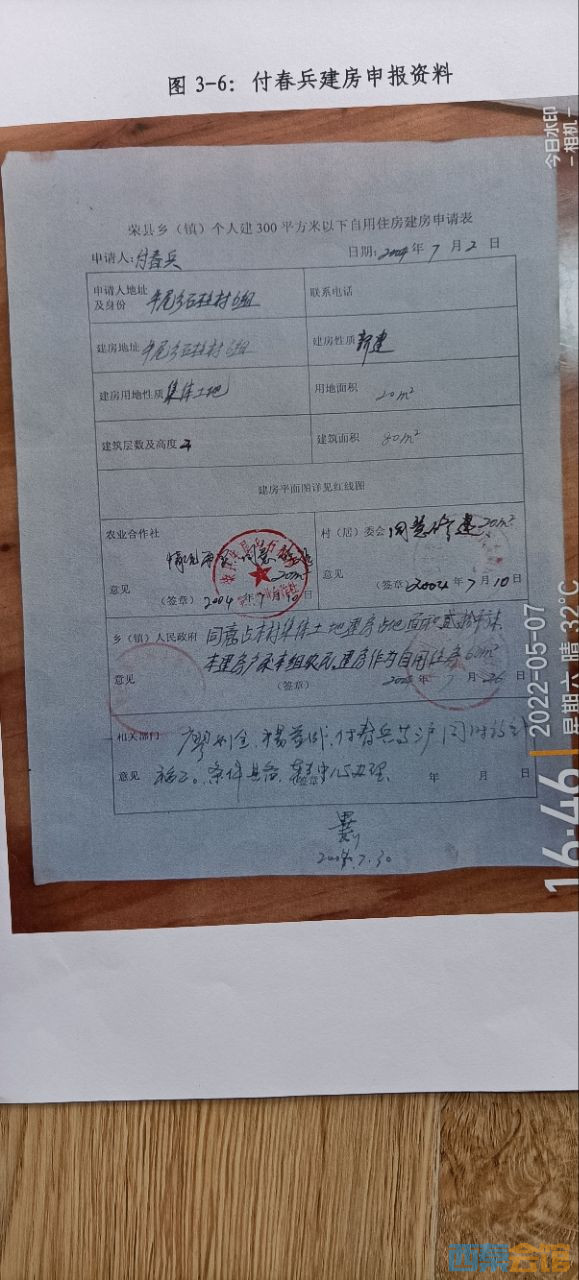 图 3-6：付春兵建房申报资料
荣县乡（镇）个人建300平方米以下自用住房建房申请表
申请人：付春兵 日期：2004年7月2日
申请人地址及身份 牟尾乡石柱村6组 联系电话
建房地址 牟尾乡石柱村6组 建房性质 新建
建房用地性质 集体土地 用地面积 20m²
建筑层数及高度 建筑面积 80m²
建房平面图详见红线图
农业合作社 村（居）委会 同意修建20m²
情况属实 同意 20m²
意见 意见
（签章）2004年7月10日 （签章）2004年7月10日
乡（镇）人民政府 同意占本村集体土地建房占地面积贰拾平米，
本建房户系本组农民，建房作为自用住房60m²
意见 （签章） 年7月26日
相关部门 付春兵
意见 条件具备 办理 年 月 日
2004.7.30
今日水印
-相机-
16:46
2022-05-07
星期六 晴 32℃
西秦会馆